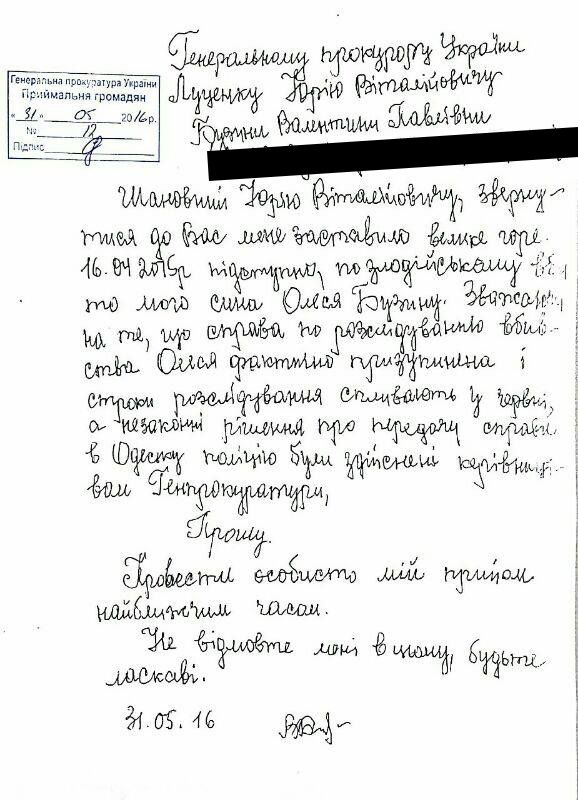 Генеральна прокуратура України
Приймальня громадян
"31" 05 2016 р.
№ 12
Підпис
Генеральному прокурору України
Луценку Юрію Віталійовичу
Бузини Валентини Павлівни
Шановний Юрію Віталійовичу, зверну-
тися до Вас мене заставило велике горе.
16.04 2015р підступно, по злодійському вби
то мого сина Олеся Бузину. Зважаючи
на те, що справа по розслідуванню вбив-
ства Олеся фактично призупинена і
строки розслідування спливають у червні,
а незаконні рішення про передачу справи
в Одеську поліцію були здійснені керівницт-
вом Генпрокуратури,
Прошу.
Провести особисто мій прийом
найближчим часом.
Не відмовте мені в цьому, будьте
ласкаві.
31.05.16